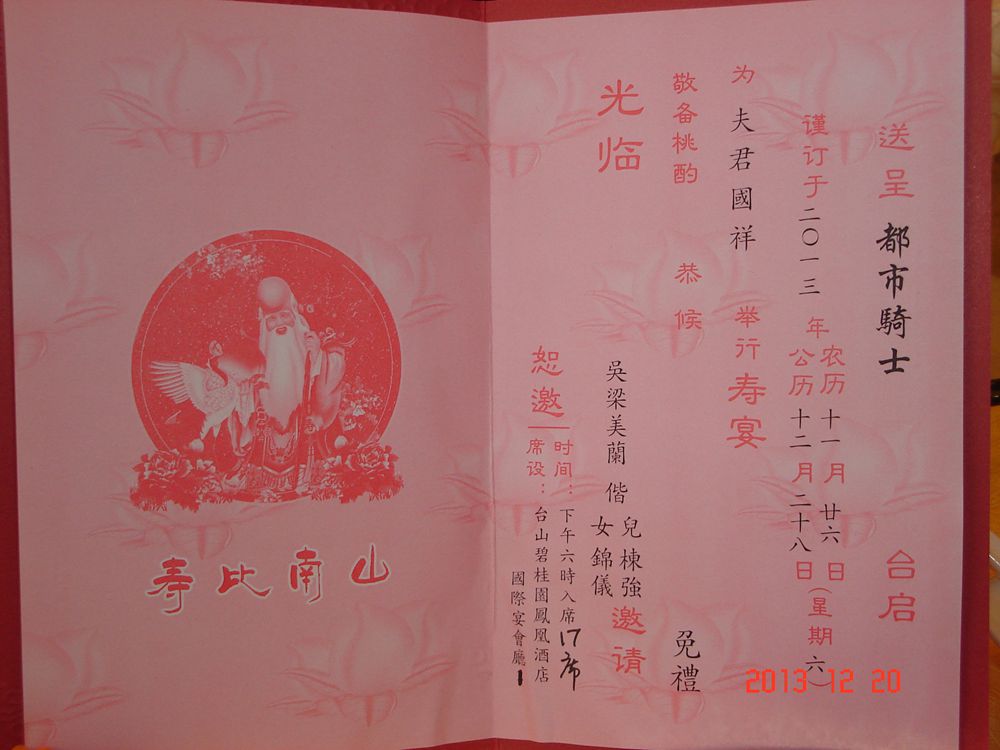 送呈 都市騎士 台启
谨订于二〇一三年
农历十一月廿六日
公历十二月二十八日
(星期六)
为 夫君國祥 举行寿宴
敬备桃酌 恭候
免禮
光临
吳梁美蘭 偕
兒棟強
女錦儀
邀请
恕邀
时间：下午六時入席 17席
席设：台山碧桂園鳳凰酒店
國際宴會廳1
寿比南山
2013 12 20